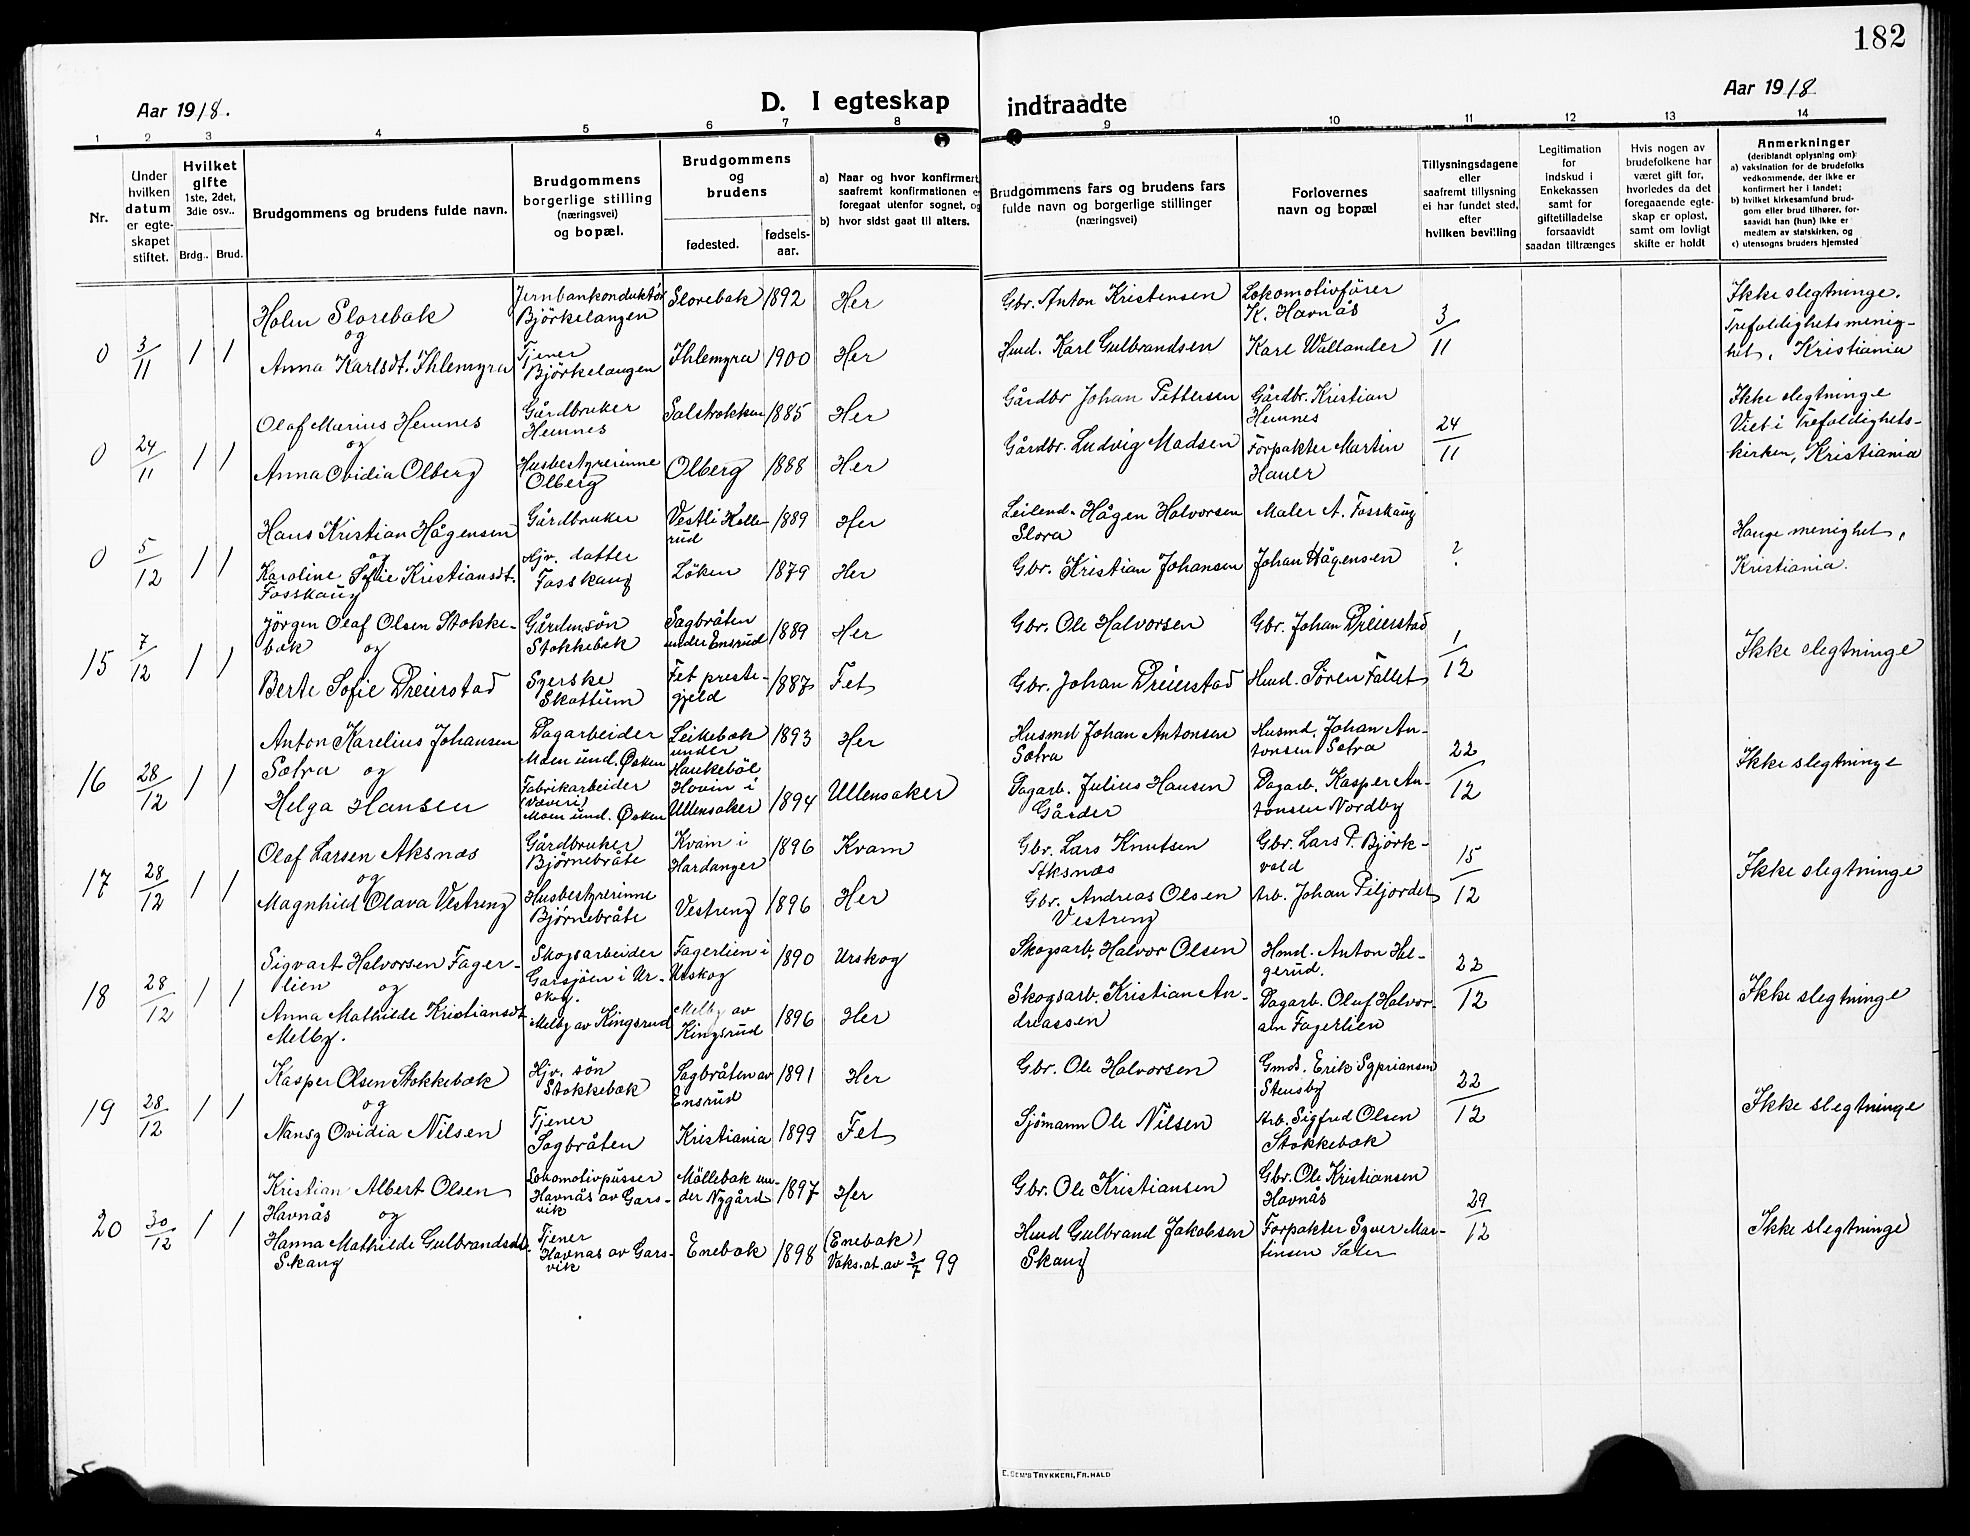 182
Aar 1918.
D. I egteskap
indtraadte
Aar 1918
1 2 3 4 5 6 7 8 9 10 11 12 13 14
Nr.
Under
hvilken
datum
er egte-
skapet
stiftet.
Hvilket
gifte
1ste, 2det,
3die osv..
Brdg.. Brud.
Brudgommens og brudens fulde navn.
Brudgommens
borgerlige stilling
(næringsvei)
og bopæl.
Brudgommens
og
brudens
fødested.
fødsels-
aar.
a) Naar og hvor konfirmert
saafremt konfirmationen e
foregaat utenfor sognet, og
b) hvor sidst gaat til alters.
Brudgommens fars og brudens fars
fulde navn og borgerlige stillinger
(næringsvei)
Forlovernes
navn og bopæl
Tillysningsdagene
eller
saafremt tillysning
ei har fundet sted,
efter
hvilken bevilling
Legitimation
for
indskud i
Enkekassen
samt for
giftetilladelse
forsaavidt
saadan tiltrænges
Hvis nogen av
brudefolkene har
været gift før,
hvorledes da det
foregaaende egte-
skap er opløst,
samt om lovligt
skifte er holdt
Anmerkninger
(deriblandt oplysning om):
a) vaksination for de brudefolks
vedkommende, der ikke er
konfirmert her i landet;
b) hvilket kirkesamfund brud-
gom eller brud tilhører, for-
saavidt han (hun) ikke er
medlem av statskirken, og
c) utensogns bruders hjemsted
0 3/11 1 1
Holm Slorebak
og
Anna Karlsdt. Ihlemyra
Jernbankonduktör
Björkelangen
Tjener
Björkelangen
Slorebak 1892 Her
Ihlemyra 1900 Her
Gbr. Anton Kristensen
Hmd. Karl Gulbrandsen
Lokomotivfører
K. Havnås
Karl Wallander
3/11
Ikke slegtninge.
Trefoldighets menig-
het, Kristiania
0 24/11 1 1
Olaf Marius Hemnes
og
Anna Ovidia Olberg
Gårdbruker
Hemnes
Husbestyrerinne
Olberg
Salstrokken 1885 Her
Olberg 1888 Her
Gårdbr Johan Pettersen
Gårdbr. Ludvig Madsen
Gårdbr. Kristian
Hemnes
Forpakter Martin
Hauer
24/11
Ikke slegtninge
Viet i Trefoldighets-
kirken, Kristiania
0 5/12 1 1
Hans Kristian Hågensen
og
Karoline Sofie Kristiansdt.
Fosskaug
Gårdbruker
Hjv. datter
Fosskaug
Vestli Kolle-
rud 1889 Her
Løken 1879 Her
Leilend. Hågen Halvorsen
Slora
Gbr. Kristian Johansen
Maler A. Fosskaug
Johan Hågensen
?
Hauge menighet,
Kristiania.
15 7/12 1 1
Jörgen Olaf Olsen Stokke-
bæk og
Berte Sofie Dreierstad
Gårdmsön
Stokkebæk
Syerske
Skattum
Sagbråten
under Ensrud 1889 Her
Fet preste-
gjeld 1887 Fet
Gbr. Ole Halvorsen
Gbr. Johan Dreierstad
Gbr. Johan Dreierstad
Hmd. Sören Fallet
1/12
Ikke slegtninge
16 28/12 1 1
Anton Karelius Johansen
Sætra og
Helga Hansen
Dagarbeider
Moen und. Øsken
Fabrikarbeider
(Væveri)
Moen und. Øsken
Leikebæk
under
Haukebøl 1893 Her
Hovin i
Ullensaker 1894 Ullensaker
Husmd Johan Antonsen
Sætra
Dagarb. Julius Hansen
Gårder
Husmd. Johan An-
tonsen Sætra
Dagarb. Kasper An-
tonsen Nordby
22/12
Ikke slegtninge
17 28/12 1 1
Olaf Larsen Aksnæs
og
Magnhild Olava Vestreng
Gårdbruker
Björnebråte
Husbestyrerinne
Björnebråte
Kvam i
Hardanger 1896 Kvam
Vestreng 1896 Her
Gbr. Lars Knutsen
Aksnæs
Gbr. Andreas Olsen
Vestreng
Gbr. Lars P. Björk-
vold
Arb. Johan Piljordet
15/12
Ikke slegtninge
18 28/12 1 1
Sigvart Halvorsen Fager-
lien og
Anna Mathilde Kristiansdt
Melby.
Skogsarbeider
Garsjöen i Ur-
skog.
Melby av Kingsrud
Fagerlien i
Urskog 1890 Urskog
Melby av
Kingsrud 1896 Her
Skogsarb. Halvor Olsen
Skogsarb. Kristian An-
dreassen
Hmd. Anton Hel-
gerud.
Dagarb. Oluf Halvor-
sen Fagerlien
22/12
Ikke slegtninge
19 28/12 1 1
Kasper Olsen Stokkebæk
og
Nansy Ovidia Nilsen
Hjv. sön
Stokkebæk
Tjener
Sagbråten
Sagbråten av
Ensrud 1891 Her
Kristiania 1899 Fet
Gbr. Ole Halvorsen
Sjömann Ole Nilsen
Gmd. Erik Sypriansen
Stensby
Arb. Sigfred Olsen
Stokkebæk
22/12
Ikke slegtninge
20 30/12 1 1
Kristian Albert Olsen
Havnås og
Hanna Mathilde Gulbrandsdt.
Skaug
Lokomotivpusser
Havnås av Gars-
vik
Tjener
Havnås av Gars-
vik
Möllebæk un-
der Nygård 1897 Her
Enebak 1898 (Enebak)
Vaks.at. av 3/7 99
Gbr. Ole Kristiansen
Hmd Gulbrand Jakobsen
Skaug
Gbr. Ole Kristiansen
Havnås
Forpakter Syver Mar-
tinsen Sæter
29/12
Ikke slegtninge
E. SEM'S TRYKKERI, FR.HALD